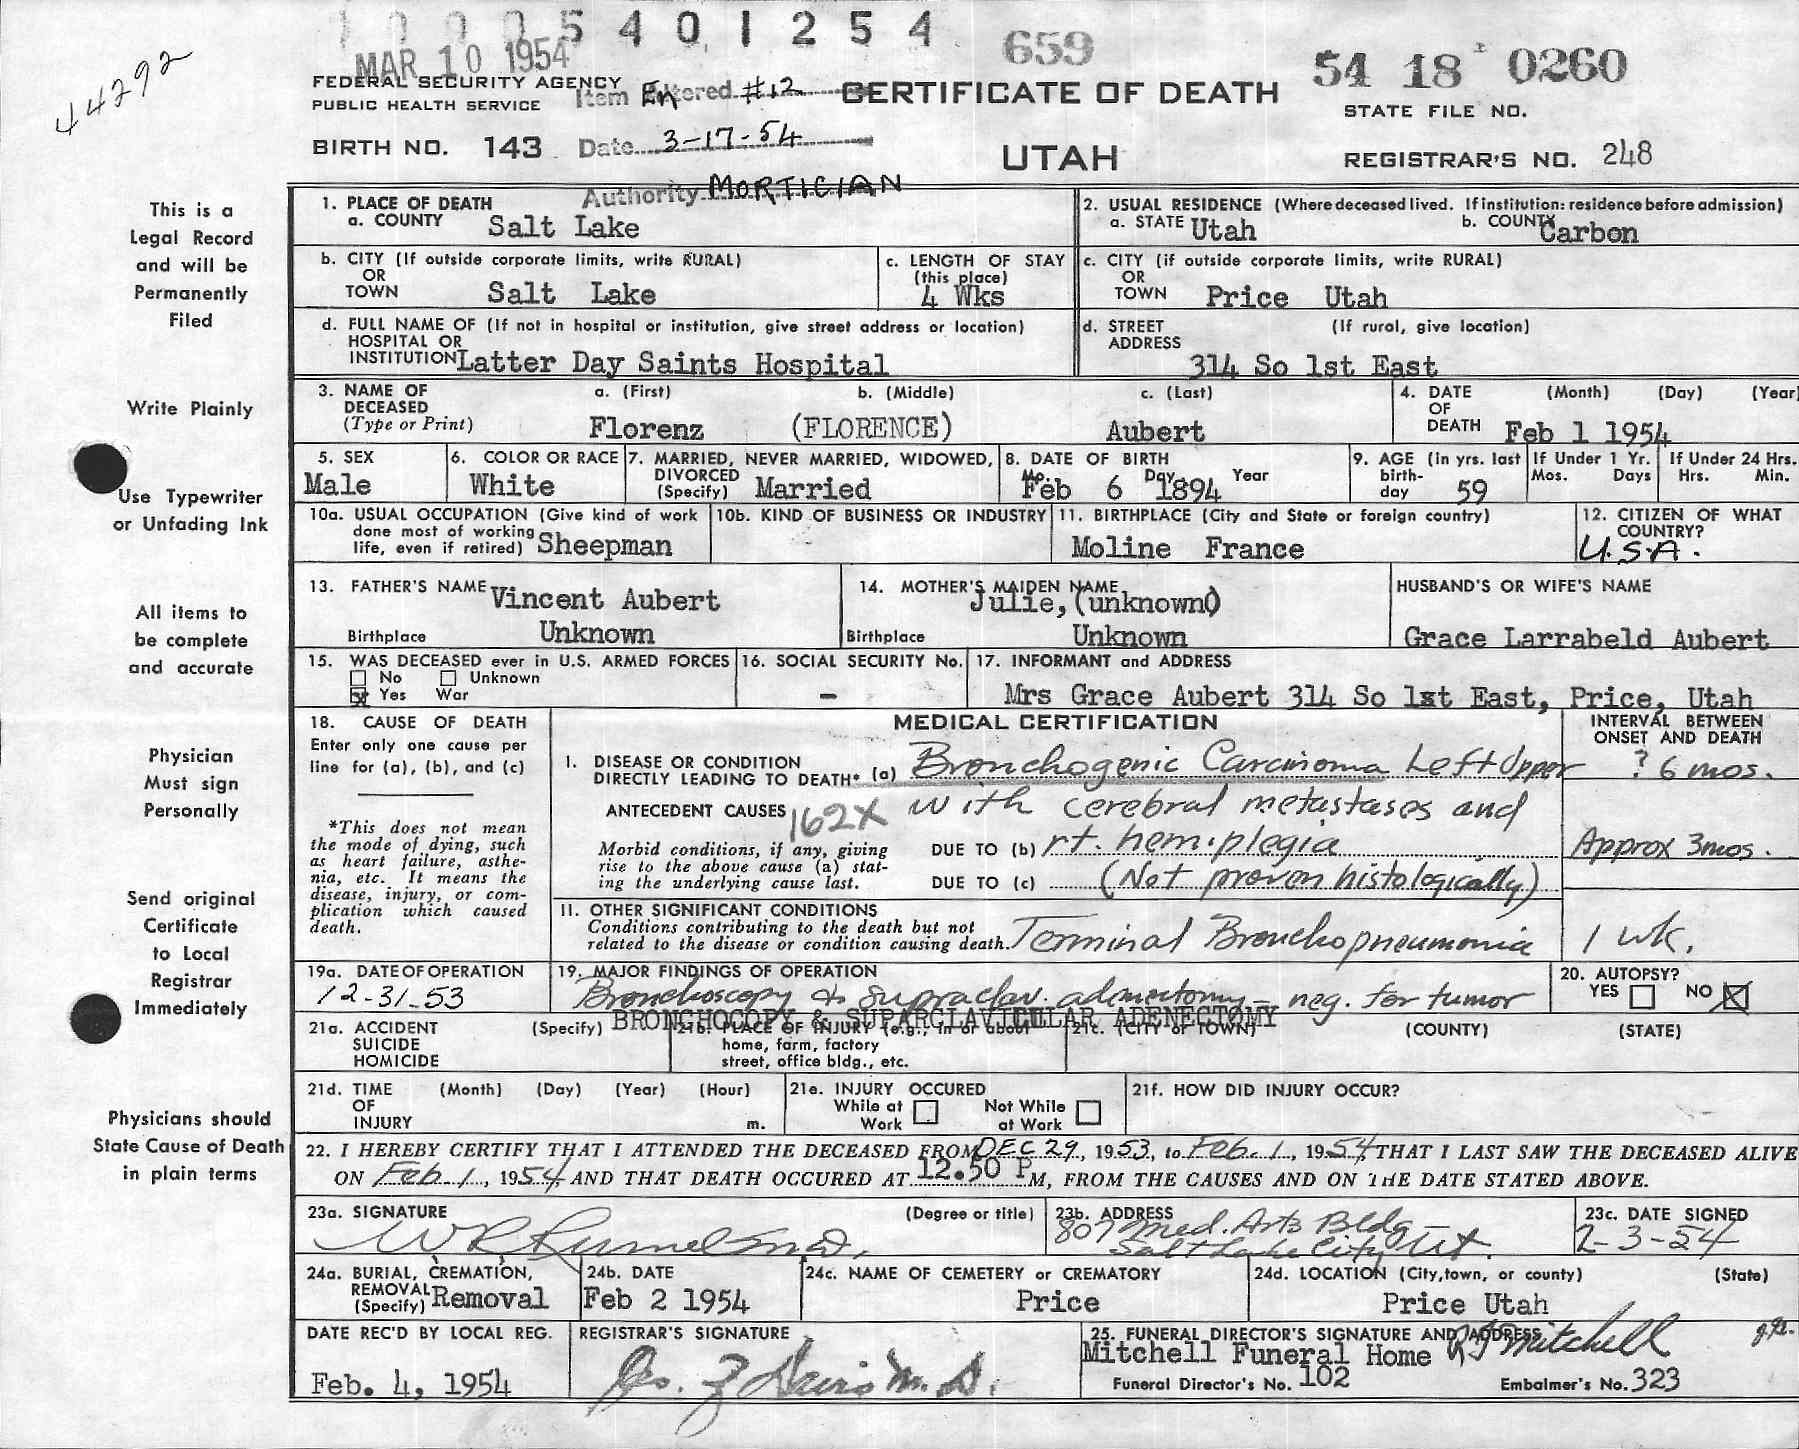 1 0 0 5 4 0 1 2 5 4
44292
MAR 10 1954
659
54 18 0260
FEDERAL SECURITY AGENCY
PUBLIC HEALTH SERVICE
Item Entered #12
CERTIFICATE OF DEATH
STATE FILE NO.
BIRTH NO. 143
Date 3-17-54
UTAH
REGISTRAR'S NO. 248
Authority MORTICIAN
This is a
Legal Record
and will be
Permanently
Filed
Write Plainly
Use Typewriter
or Unfading Ink
All items to
be complete
and accurate
Physician
Must sign
Personally
Send original
Certificate
to Local
Registrar
Immediately
Physicians should
State Cause of Death
in plain terms
1. PLACE OF DEATH
a. COUNTY Salt Lake
2. USUAL RESIDENCE (Where deceased lived. If institution: residence before admission)
a. STATE Utah b. COUNTY Carbon
b. CITY (If outside corporate limits, write RURAL)
OR
TOWN Salt Lake
c. LENGTH OF STAY
(this place)
4 Wks
c. CITY (if outside corporate limits, write RURAL)
OR
TOWN Price Utah
d. FULL NAME OF (If not in hospital or institution, give street address or location)
HOSPITAL OR
INSTITUTION Latter Day Saints Hospital
d. STREET (If rural, give location)
ADDRESS
314 So 1st East
3. NAME OF a. (First) b. (Middle) c. (Last)
DECEASED
(Type or Print) Florenz (FLORENCE) Aubert
4. DATE (Month) (Day) (Year)
OF
DEATH Feb 1 1954
5. SEX
Male
6. COLOR OR RACE
White
7. MARRIED, NEVER MARRIED, WIDOWED,
DIVORCED
(Specify) Married
8. DATE OF BIRTH
Mo. Day Year
Feb 6 1894
9. AGE (in yrs. last
birth-
day 59
If Under 1 Yr.
Mos. Days
If Under 24 Hrs.
Hrs. Min.
10a. USUAL OCCUPATION (Give kind of work
done most of working
life, even if retired) Sheepman
10b. KIND OF BUSINESS OR INDUSTRY
11. BIRTHPLACE (City and State or foreign country)
Moline France
12. CITIZEN OF WHAT
COUNTRY?
U.S.A.
13. FATHER'S NAME Vincent Aubert
Birthplace Unknown
14. MOTHER'S MAIDEN NAME
Julie, (unknown)
Birthplace Unknown
HUSBAND'S OR WIFE'S NAME
Grace Larrabeld Aubert
15. WAS DECEASED ever in U.S. ARMED FORCES
No Unknown
x Yes War
16. SOCIAL SECURITY No.
-
17. INFORMANT and ADDRESS
Mrs Grace Aubert 314 So 1st East, Price, Utah
18. CAUSE OF DEATH
Enter only one cause per
line for (a), (b), and (c)
*This does not mean
the mode of dying, such
as heart failure, asthe-
nia, etc. It means the
disease, injury, or com-
plication which caused
death.
MEDICAL CERTIFICATION
INTERVAL BETWEEN
ONSET AND DEATH
I. DISEASE OR CONDITION
DIRECTLY LEADING TO DEATH* (a) Bronchogenic Carcinoma Left Upper ? 6 mos.
ANTECEDENT CAUSES 162X with cerebral metastases and
Morbid conditions, if any, giving
rise to the above cause (a) stat-
ing the underlying cause last.
DUE TO (b) rt. hemiplegia Approx 3 mos.
DUE TO (c) (Not proven histologically)
11. OTHER SIGNIFICANT CONDITIONS
Conditions contributing to the death but not
related to the disease or condition causing death. Terminal Bronchopneumonia 1 wk.
19a. DATE OF OPERATION
12-31-53
19. MAJOR FINDINGS OF OPERATION
Bronchoscopy & supraclav. adenectomy - neg. for tumor
BRONCHOCOPY & SUPARCLAVICULAR ADENECTOMY
20. AUTOPSY?
YES NO X
21a. ACCIDENT (Specify)
SUICIDE
HOMICIDE
21b. PLACE OF INJURY (e.g., in or about
home, farm, factory
street, office bldg., etc.
21c. (CITY or TOWN) (COUNTY) (STATE)
21d. TIME (Month) (Day) (Year) (Hour)
OF
INJURY m.
21e. INJURY OCCURED
While at Not While
Work at Work
21f. HOW DID INJURY OCCUR?
22. I HEREBY CERTIFY THAT I ATTENDED THE DECEASED FROM DEC 29, 1953, to Feb. 1, 1954, THAT I LAST SAW THE DECEASED ALIVE
ON Feb. 1, 1954, AND THAT DEATH OCCURED AT 12.50 P M, FROM THE CAUSES AND ON THE DATE STATED ABOVE.
23a. SIGNATURE (Degree or title)
W R Rumel M.D.
23b. ADDRESS
807 Med. Arts Bldg -
Salt Lake City Ut.
23c. DATE SIGNED
2-3-54
24a. BURIAL, CREMATION,
REMOVAL
(Specify) Removal
24b. DATE
Feb 2 1954
24c. NAME OF CEMETERY or CREMATORY
Price
24d. LOCATION (City, town, or county) (State)
Price Utah
DATE REC'D BY LOCAL REG.
Feb. 4, 1954
REGISTRAR'S SIGNATURE
Geo. Z Davis M.D.
25. FUNERAL DIRECTOR'S SIGNATURE AND ADDRESS
Mitchell Funeral Home Mitchell
Funeral Director's No. 102 Embalmer's No. 323